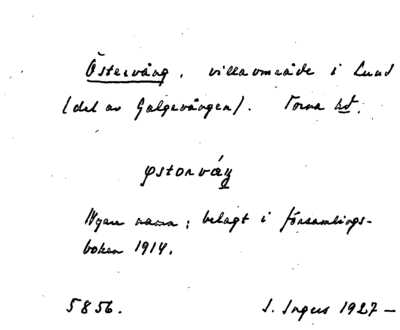 Östervång, villaområde i Lund
(del av Galgevången). Torna hd.
østorváŋ
Nyare namn; belagt i församlings-
boken 1914.
5856.
I. Ingers 1927-